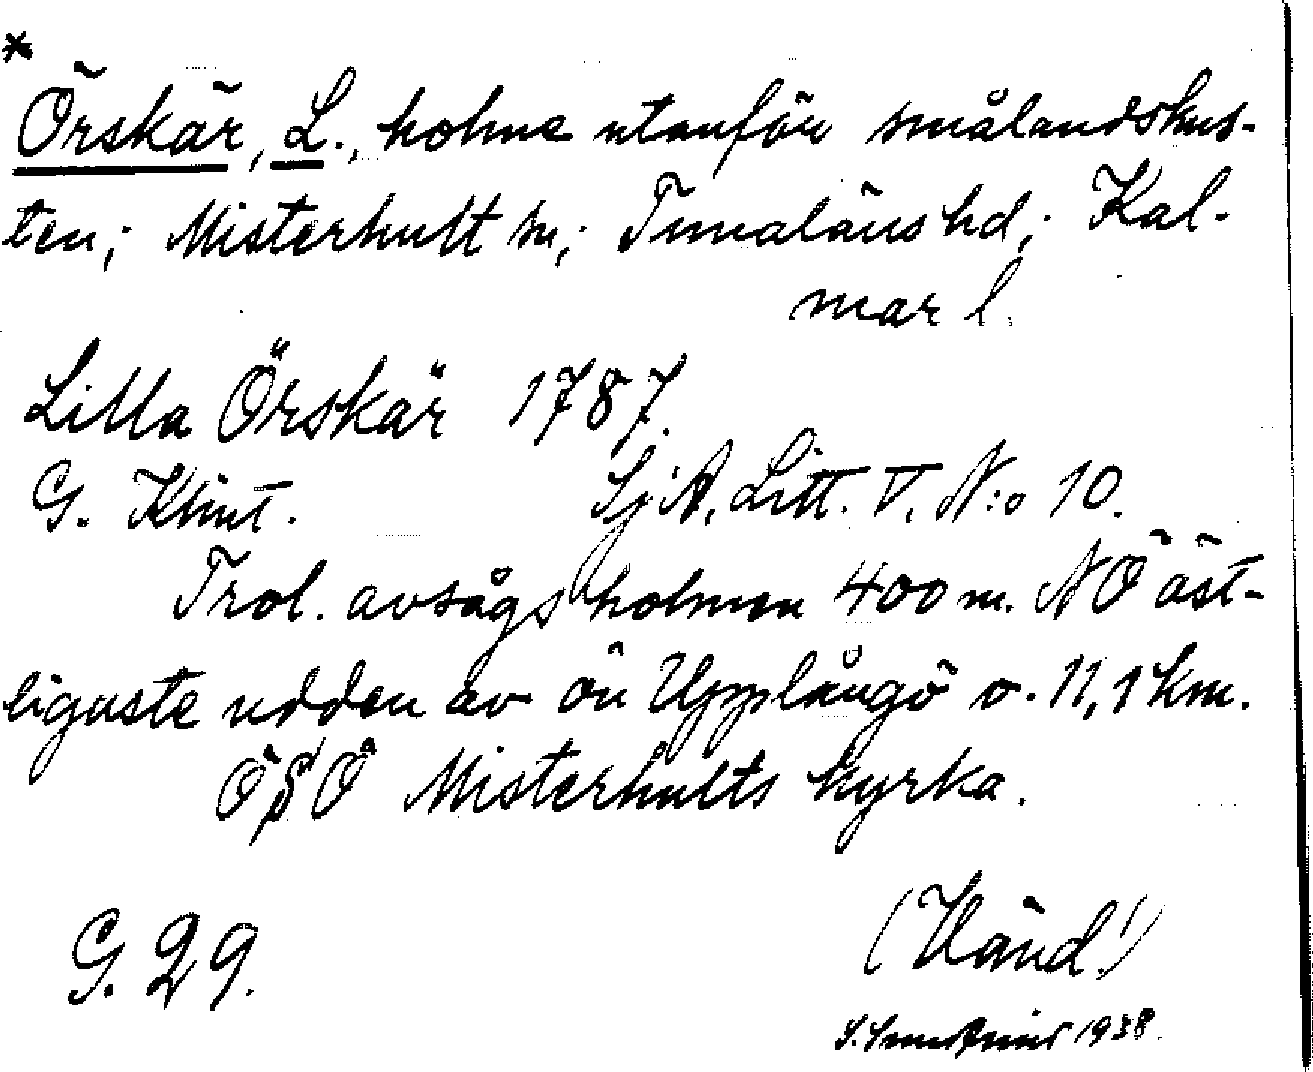 *
Örskär, L., holme utanför smålandskus-
ten; Misterhult sn; Tunaläns hd; Kal-
mar l.
Lilla Örskär 1787.
G. Klint. SjA, Litt. V, N:o 10.
Trol. avsågs holmen 400 m. NO öst-
ligaste udden av ön Upplångö o. 11,1 km.
OSO Misterhults kyrka.
G. 29. (Vänd!)
1938.